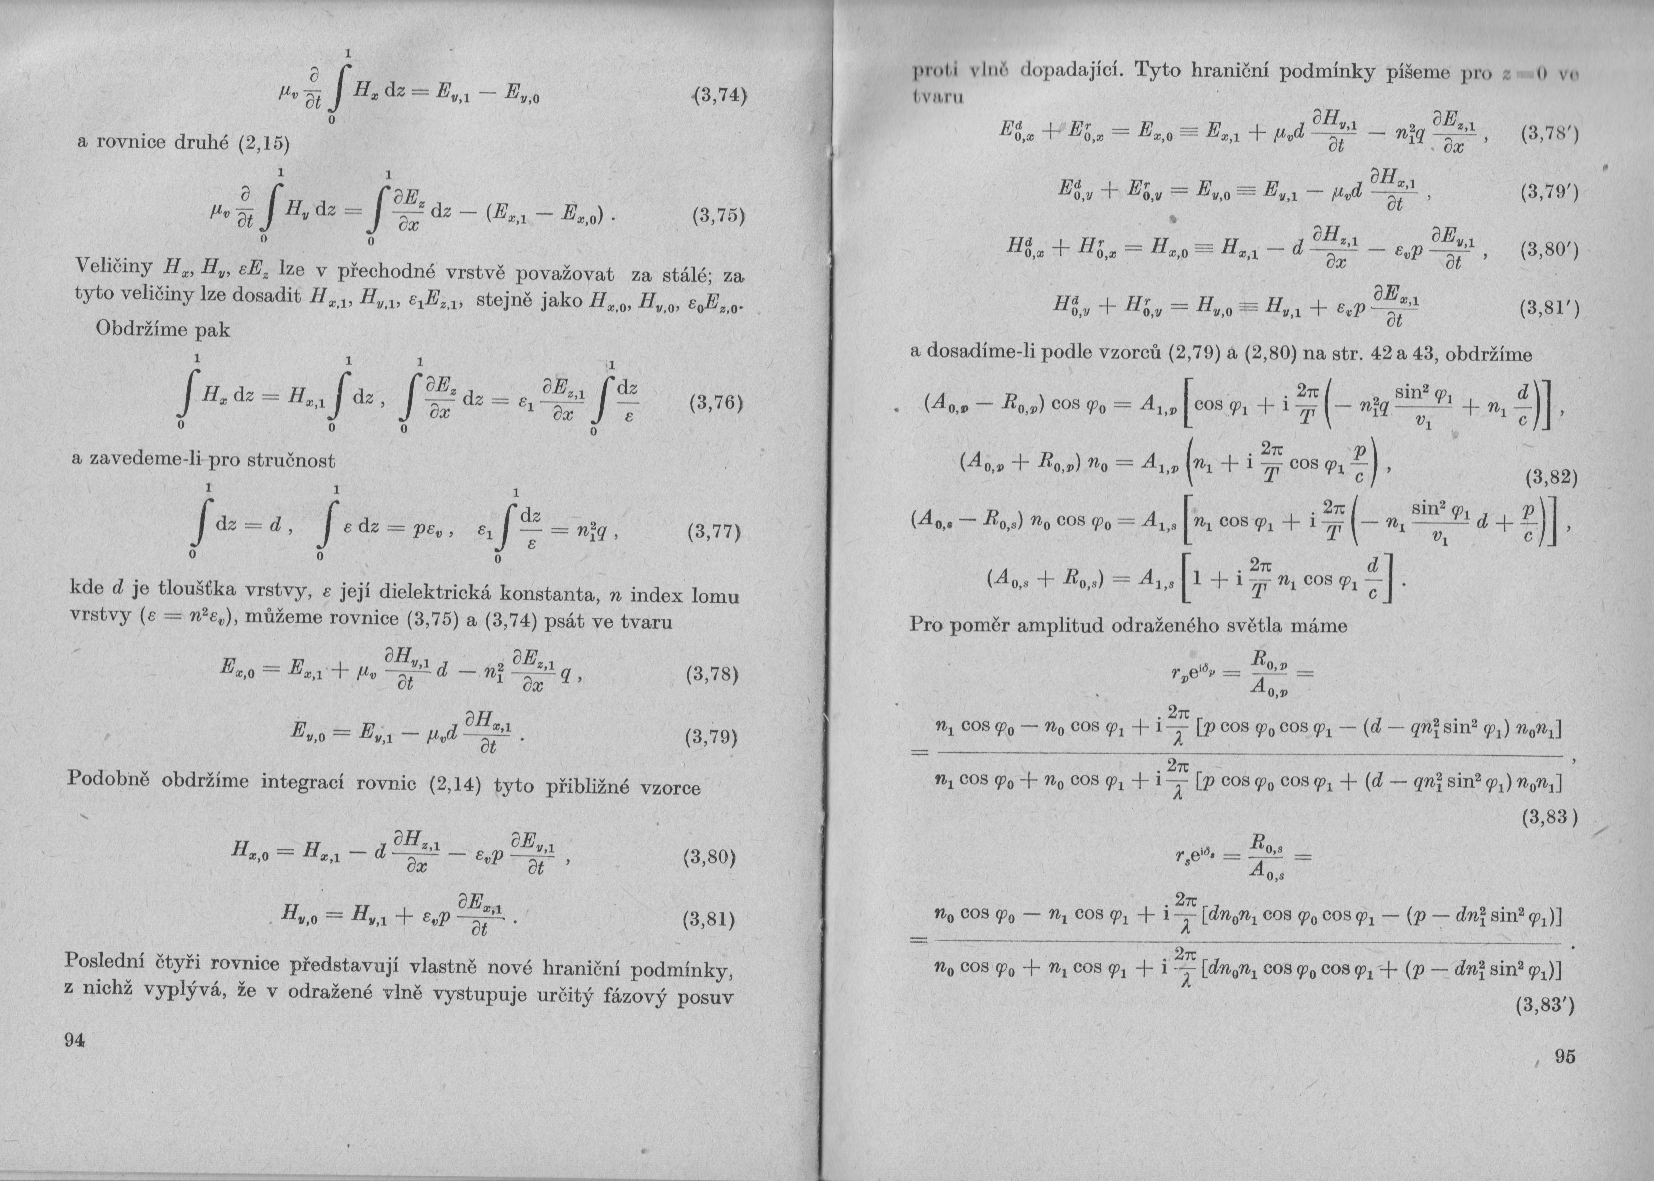 μ_v ∂/∂t ∫₀¹ H_x dz = E_{y,1} − E_{y,0} (3,74)
a rovnice druhé (2,15)
μ_v ∂/∂t ∫₀¹ H_y dz = ∫₀¹ ∂E_z/∂x dz − (E_{x,1} − E_{x,0}) . (3,75)
Veličiny H_x, H_y, εE_z lze v přechodné vrstvě považovat za stálé; za
tyto veličiny lze dosadit H_{x,1}, H_{y,1}, ε₁E_{z,1}, stejně jako H_{x,0}, H_{y,0}, ε₀E_{z,0}.
Obdržíme pak
∫₀¹ H_x dz = H_{x,1} ∫₀¹ dz , ∫₀¹ ∂E_z/∂x dz = ε₁ ∂E_{z,1}/∂x ∫₀¹ dz/ε (3,76)
a zavedeme-li pro stručnost
∫₀¹ dz = d , ∫₀¹ ε dz = pε_v , ε₁ ∫₀¹ dz/ε = n₁²q , (3,77)
kde d je tloušťka vrstvy, ε její dielektrická konstanta, n index lomu
vrstvy (ε = n²ε_v), můžeme rovnice (3,75) a (3,74) psát ve tvaru
E_{x,0} = E_{x,1} + μ_v ∂H_{y,1}/∂t d − n₁² ∂E_{z,1}/∂x q , (3,78)
E_{y,0} = E_{y,1} − μ_v d ∂H_{x,1}/∂t . (3,79)
Podobně obdržíme integrací rovnic (2,14) tyto přibližné vzorce
H_{x,0} = H_{x,1} − d ∂H_{z,1}/∂x − ε_v p ∂E_{y,1}/∂t , (3,80)
H_{y,0} = H_{y,1} + ε_v p ∂E_{x,1}/∂t . (3,81)
Poslední čtyři rovnice představují vlastně nové hraniční podmínky,
z nichž vyplývá, že v odražené vlně vystupuje určitý fázový posuv
94
proti vlně dopadající. Tyto hraniční podmínky píšeme pro z = 0 ve
tvaru
E^d_{0,x} + E^r_{0,x} = E_{x,0} ≡ E_{x,1} + μ_v d ∂H_{y,1}/∂t − n₁²q ∂E_{z,1}/∂x , (3,78′)
E^d_{0,y} + E^r_{0,y} = E_{y,0} ≡ E_{y,1} − μ_v d ∂H_{x,1}/∂t , (3,79′)
H^d_{0,x} + H^r_{0,x} = H_{x,0} ≡ H_{x,1} − d ∂H_{z,1}/∂x − ε_v p ∂E_{y,1}/∂t , (3,80′)
H^d_{0,y} + H^r_{0,y} = H_{y,0} ≡ H_{y,1} + ε_v p ∂E_{x,1}/∂t (3,81′)
a dosadíme-li podle vzorců (2,79) a (2,80) na str. 42 a 43, obdržíme
(A_{0,p} − R_{0,p}) cos φ₀ = A_{1,p} [cos φ₁ + i 2π/T (− n₁²q sin² φ₁/v₁ + n₁ d/c)] ,
(A_{0,p} + R_{0,p}) n₀ = A_{1,p} (n₁ + i 2π/T cos φ₁ p/c) ,
(3,82)
(A_{0,s} − R_{0,s}) n₀ cos φ₀ = A_{1,s} [n₁ cos φ₁ + i 2π/T (− n₁ sin² φ₁/v₁ d + p/c)] ,
(A_{0,s} + R_{0,s}) = A_{1,s} [1 + i 2π/T n₁ cos φ₁ d/c] .
Pro poměr amplitud odraženého světla máme
r_p e^{iδ_p} = R_{0,p}/A_{0,p} =
n₁ cos φ₀ − n₀ cos φ₁ + i 2π/λ [p cos φ₀ cos φ₁ − (d − qn₁² sin² φ₁) n₀n₁]
= ,
n₁ cos φ₀ + n₀ cos φ₁ + i 2π/λ [p cos φ₀ cos φ₁ + (d − qn₁² sin² φ₁) n₀n₁]
(3,83)
r_s e^{iδ_s} = R_{0,s}/A_{0,s} =
n₀ cos φ₀ − n₁ cos φ₁ + i 2π/λ [dn₀n₁ cos φ₀ cos φ₁ − (p − dn₁² sin² φ₁)]
= .
n₀ cos φ₀ + n₁ cos φ₁ + i 2π/λ [dn₀n₁ cos φ₀ cos φ₁ + (p − dn₁² sin² φ₁)]
(3,83′)
95